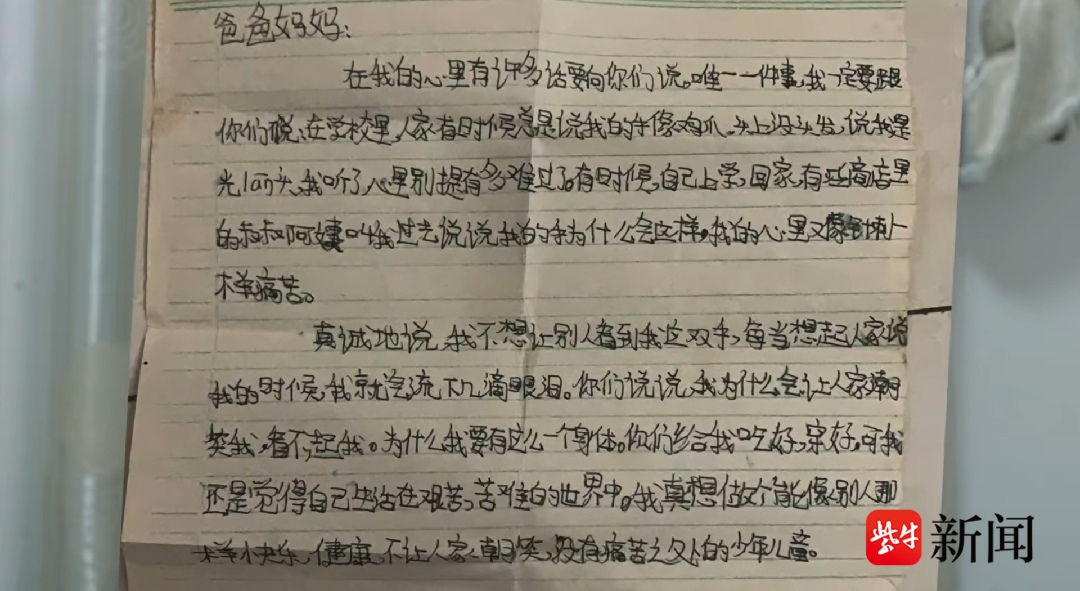 爸爸妈妈:
在我的心里有许多话要向你们说。唯一一件事,我一定要跟
你们说,在学校里人家有时候总是说我的手像鸡爪,头上没头发,说我是
光头,我听了心里别提有多难过了。有时候,自己上学,回家,有些商店里
的叔叔阿姨叫我过去说说我的手为什么会这样。我的心里又像
样痛苦。
真诚地说,我不想让别人看到我这双手,每当想起人家说
我的时候,我就会流下几滴眼泪。你们说说,我为什么会让人家朝
笑我,看不起我。为什么我要有这么一个身体。你们给我吃好,穿好,可我
还是觉得自己生活在艰苦,苦难的世界中。我真想做个能像别人那
样快乐,健康,不让人家朝笑,没有痛苦之处的少年儿童。
紫牛 新闻